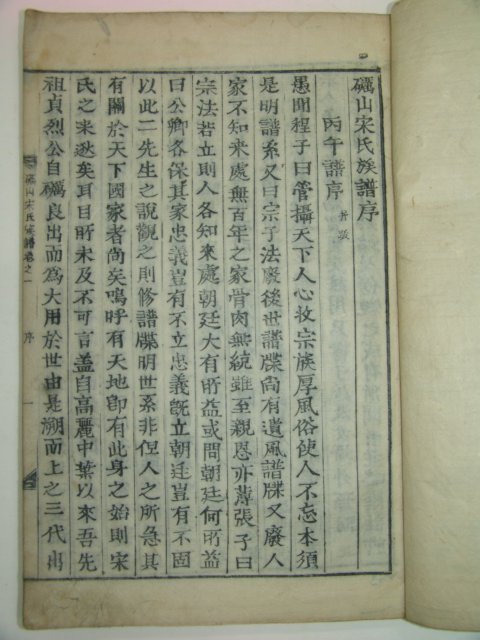 礪山宋氏族譜序
丙午譜序
愚聞程子曰管攝天下人心收宗族厚風俗使人不忘本須
是明譜系又曰宗子法廢後世譜牒尚有遺風譜牒又廢人
家不知来處無百年之家骨肉無統雖至親恩亦薄張子曰
宗法若立則人各知来處朝廷大有所益或問朝廷何所益
曰公卿各保其家忠義豈有不立忠義既立朝廷豈有不固
以此二先生之說觀之則修譜牒明世系非但人之所急其
有關於天下國家者尚矣嗚呼有天地卽有此身之始則宋
氏之来逖矣耳目所未及不可言盖自高麗中葉以来吾先
祖貞烈公自礪良出而爲大用於世由是溯而上之三代出
礪山宋氏族譜卷之一 序 一